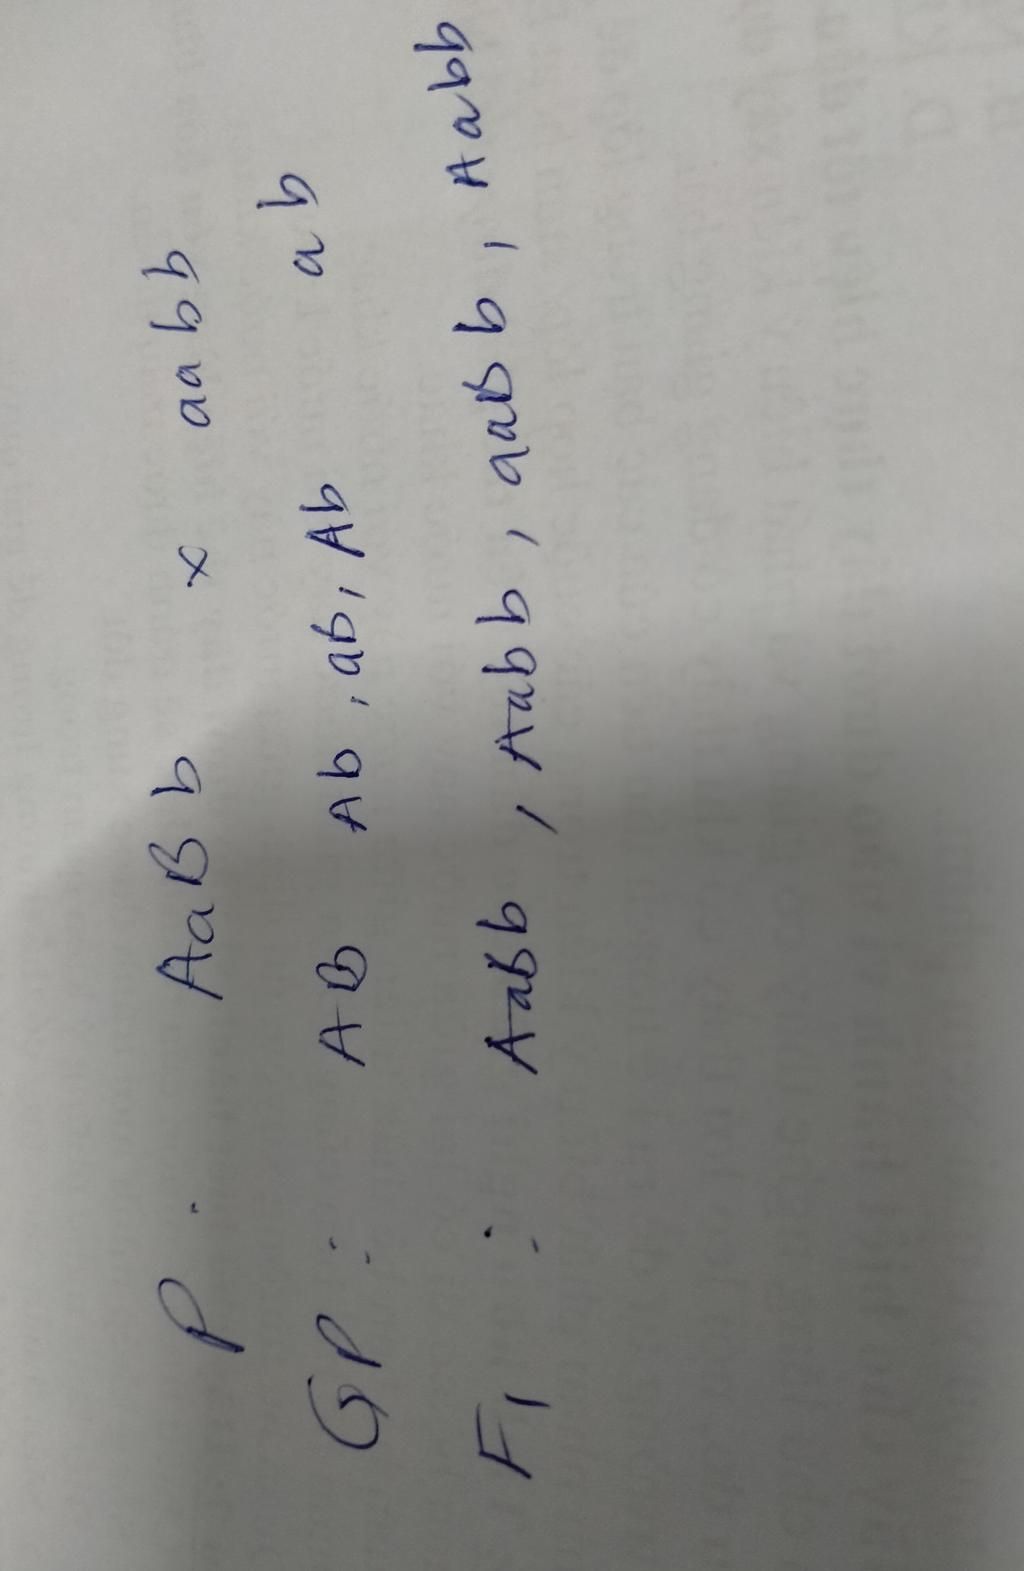 P : AaBb x aabb
GP : AB Ab , ab , Ab ab
F1 : AaBb , Aabb , aaBb , Aabb